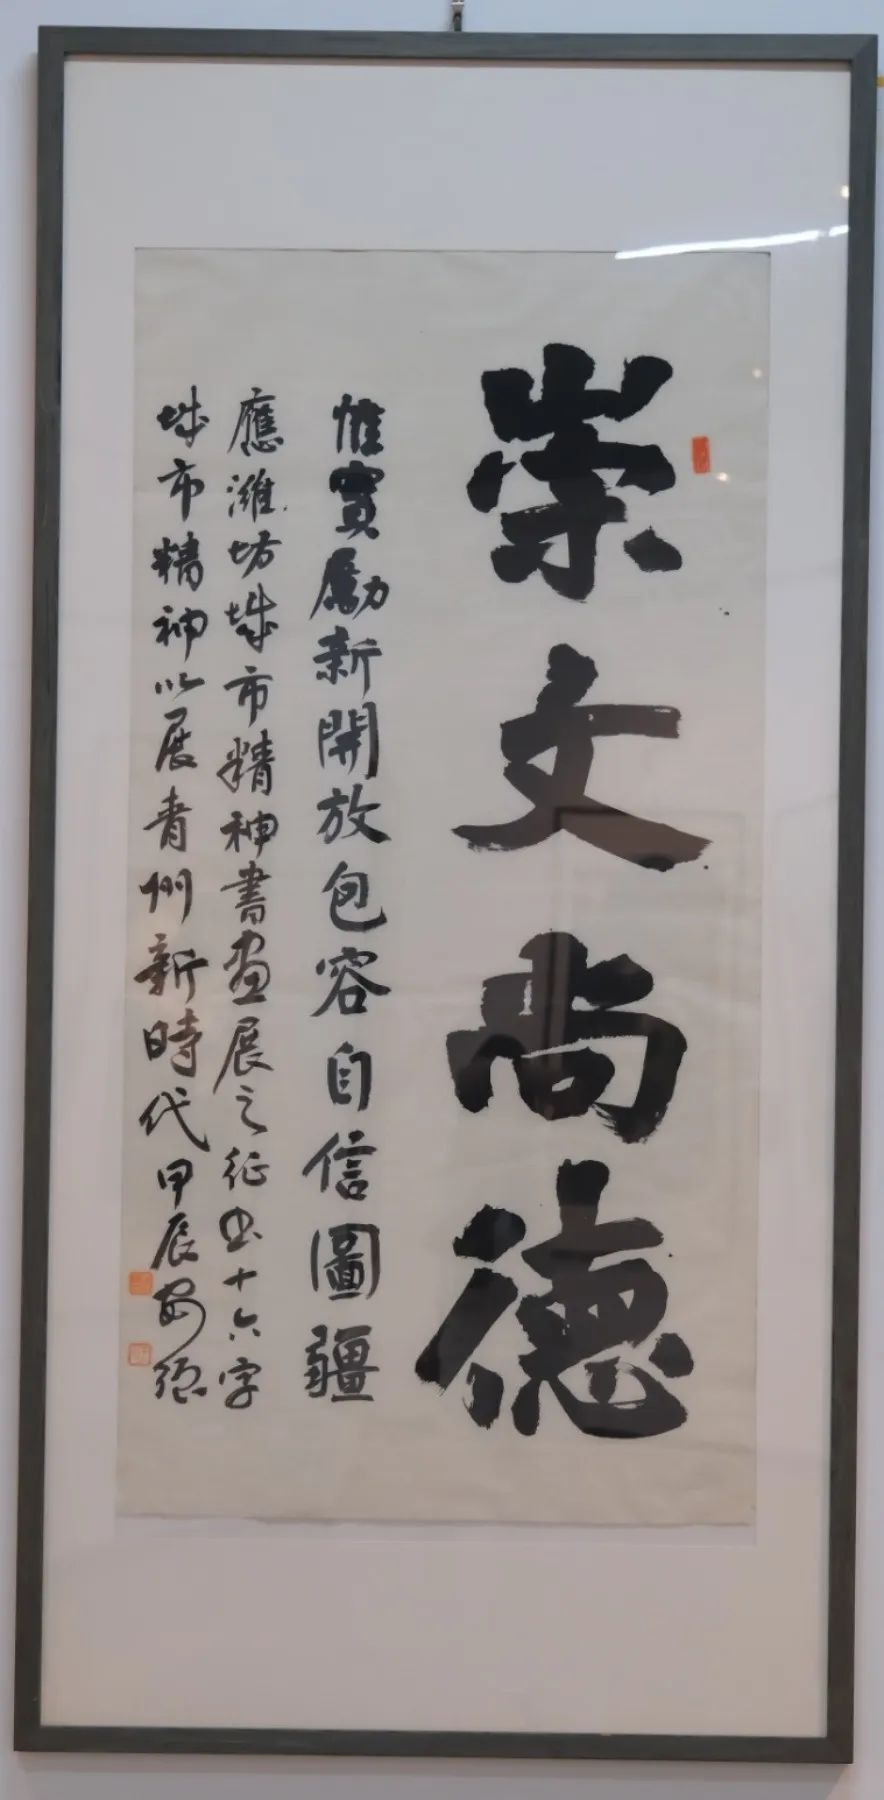 崇文尚德
惟實勵新開放包容自信圖疆
應濰坊城市精神書畫展之征書十六字
城市精神以展青州新時代甲辰